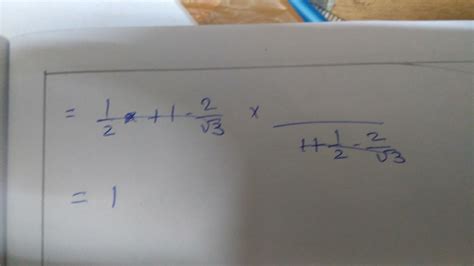 = 1/2 + 1 - 2/√3 × ―/(1+1/2 - 2/√3)
= 1